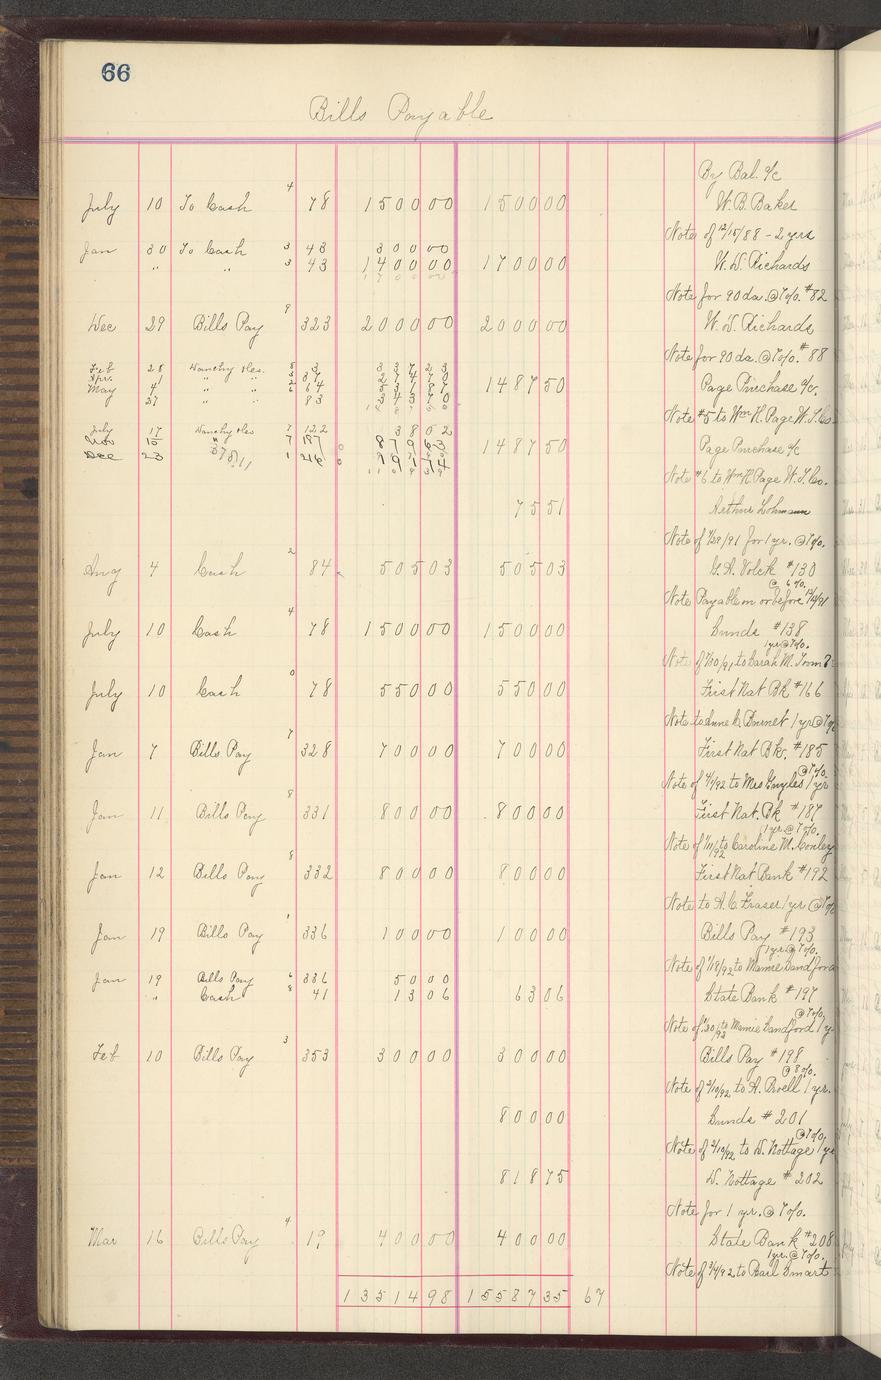 66
Bills Payable
By Bal. a/c
4
July 10 To Cash 78 1500 00 1500 00 W. B. Baker
Note of 12/15/88 - 2 yrs
Jan 30 To Cash 3 43 300 00
" " 3 43 1400 00 1700 00 W. D. Richards
1700 00
Note for 90 da. @ 7%. #82
9
Dec 29 Bills Pay 323 2000 00 2000 00 W. D. Richards
Note for 90 da. @ 7%. #88
Feb 28 8 3 337 23
Apr. 1 " " 3 37 274 70
May 4 " " 2 64 531 87 1487 50 Page Purchase a/c.
27 " " 6 83 343 70
1487 50
Note #5 to Wm H. Page W. T. Co.
July 17 7 122 38 02
Nov 10 " 7 187 879 63 1487 50 Page Purchase a/c
Dec 23 1 216 191 74
Note #6 to Wm H. Page W. T. Co.
75 51 Arthur Lohmann
Note of 7/28/91 for 1 yr. @ 7%.
2
Aug 4 Cash 84 505 03 505 03 G. A. Volck #130
@ 6%.
Note Payable on or before
4
July 10 Cash 78 1500 00 1500 00 Sunds #138
1 yr @ 7%.
Note of 7/30/91 to Sarah M.
0
July 10 Cash 78 550 00 550 00 First Nat Bk #166
Note to Anne C. Burnet 1 yr @ 7%
7
Jan 7 Bills Pay 328 700 00 700 00 First Nat Bk. #185
@ 7%.
Note of 4/1/92 to Mrs 1 yr
8
Jan 11 Bills Pay 331 800 00 800 00 First Nat. Bk #187
1 yr. @ 7%.
Note of 1/11/92 to Caroline M. Conley
8
Jan 12 Bills Pay 332 800 00 800 00 First Nat Bank #192
Note to A. C. Fraser 1 yr @ 7%
1
Jan 19 Bills Pay 336 100 00 100 00 Bills Pay #193
1 yr @ 7%.
Note of 1/18/92 to Mamie Sandford
Jan 19 Bills Pay 6 336 50 00
" Cash 8 41 13 06 63 06 State Bank #197
@ 7%.
Note of 1/30/92 to Mamie Sandford 1 y
3
Feb 10 Bills Pay 353 300 00 300 00 Bills Pay #198
@ 8%.
Note of 2/10/92 to A. Broell 1 yr.
800 00 Sunds #201
@ 7%
Note of 2/10/92 to D. Nottage 1 yr
818 75 D. Nottage #202
Note for 1 yr. @ 7%.
4
Mar 16 Bills Pay 19 400 00 400 00 State Bank #208
1 yr. @ 7%.
Note of 3/4/92 to Bail Smart
13514 98 15587 35 67